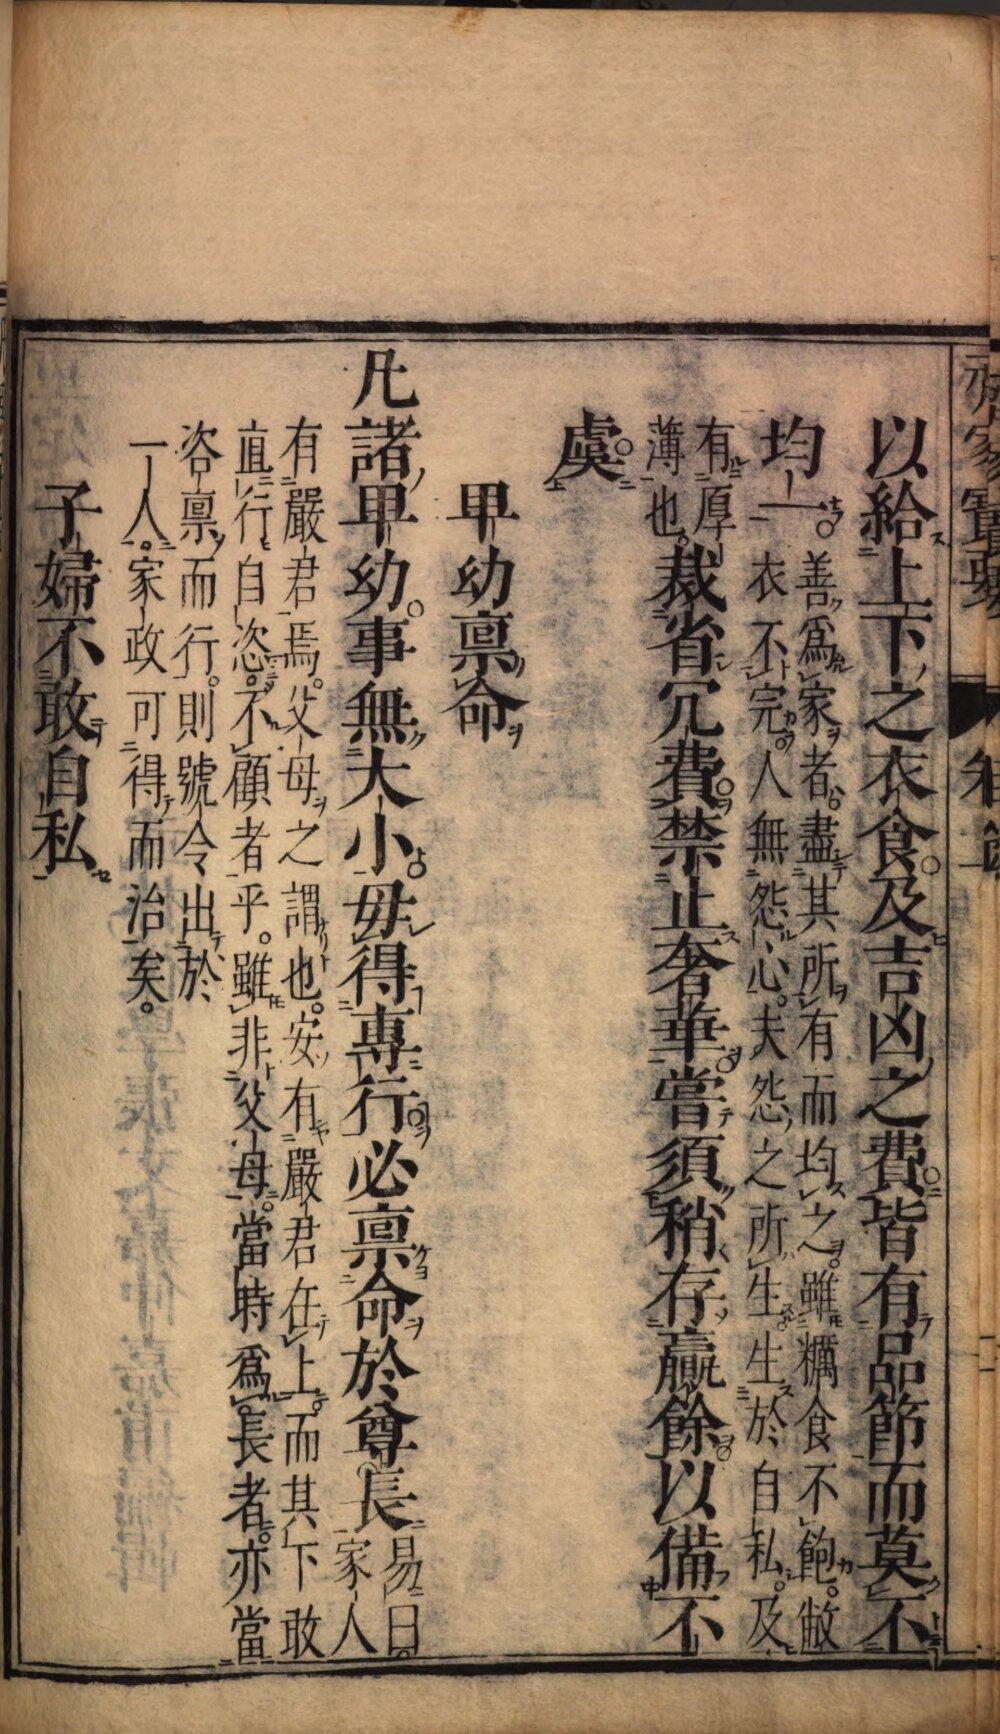 以給上下之衣食及吉凶之費皆有品節而莫不
均一
善爲家者盡其所有而均之雖糲食不飽敝
衣不完人無怨心夫怨之所生生於自私及
有厚
薄也
裁省冗費禁止奢華嘗須稍存贏餘以備不
虞
卑幼禀命
凡諸卑幼事無大小毋得專行必禀命於尊長
易曰
家人
有嚴君焉父母之謂也安有嚴君在上而其下敢
直行自恣不顧者乎雖非父母當時爲長者亦當
咨禀而行則號令出於
一人家政可得而治矣
子婦不敢自私